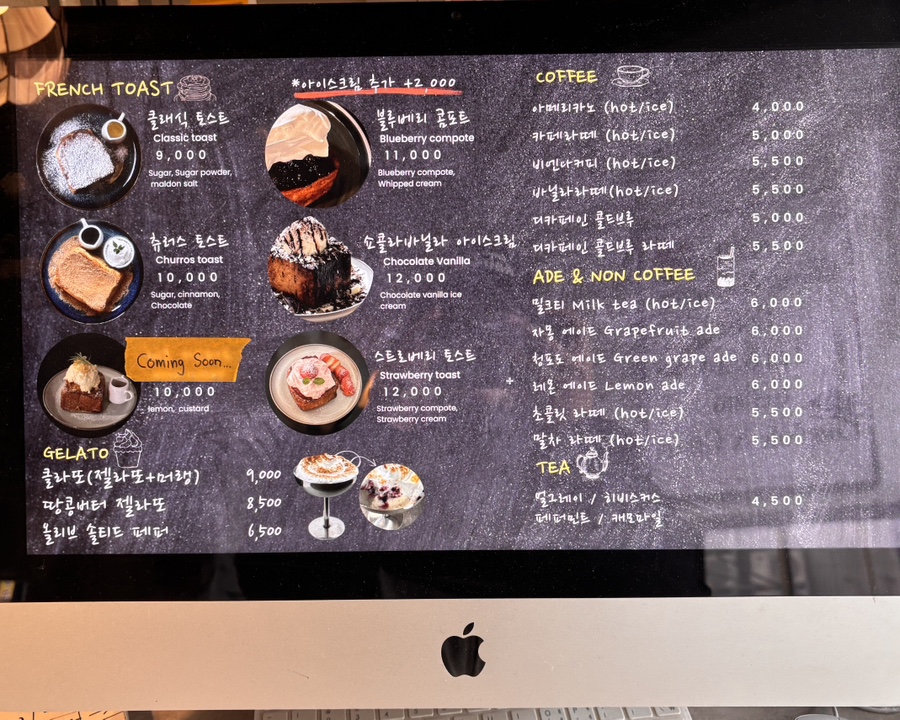 FRENCH TOAST
클래식 토스트
Classic toast
9,000
Sugar, Sugar powder,
maldon salt
츄러스 토스트
Churros toast
10,000
Sugar, cinnamon,
Chocolate
Coming Soon...
10,000
lemon, custard
*아이스크림 추가 +2,000
블루베리 콤포트
Blueberry compote
11,000
Blueberry compote,
Whipped cream
쇼콜라바닐라 아이스크림
Chocolate Vanilla
12,000
Chocolate vanilla ice
cream
스트로베리 토스트
Strawberry toast
12,000
Strawberry compote,
Strawberry cream
GELATO
클라또(젤라또+머랭) 9,000
땅콩버터 젤라또 8,500
올리브 솔티드 페퍼 6,500
COFFEE
아메리카노 (hot/ice) 4,000
카페라떼 (hot/ice) 5,000
비엔나커피 (hot/ice) 5,500
바닐라라떼(hot/ice) 5,500
디카페인 콜드브루 5,000
디카페인 콜드브루 라떼 5,500
ADE & NON COFFEE
밀크티 Milk tea (hot/ice) 6,000
자몽 에이드 Grapefruit ade 6,000
청포도 에이드 Green grape ade 6,000
레몬 에이드 Lemon ade 6,000
초콜릿 라떼 (hot/ice) 5,500
말차 라떼 (hot/ice) 5,500
TEA
얼그레이 / 히비스커스 4,500
페퍼민트 / 캐모마일